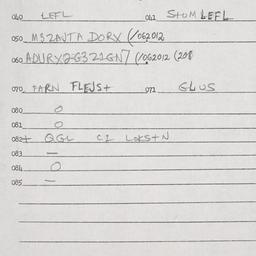 040 LEFL 041 STOM LEFL
050 M3ZAVTA DORX (/062012
060 ADURX2-G321GN7 (/062012 (208
070 PARN FLEJST 071 GLUS
080 O
081 O
082+ QGL CI LOKSTN
083 —
084 O
085 —